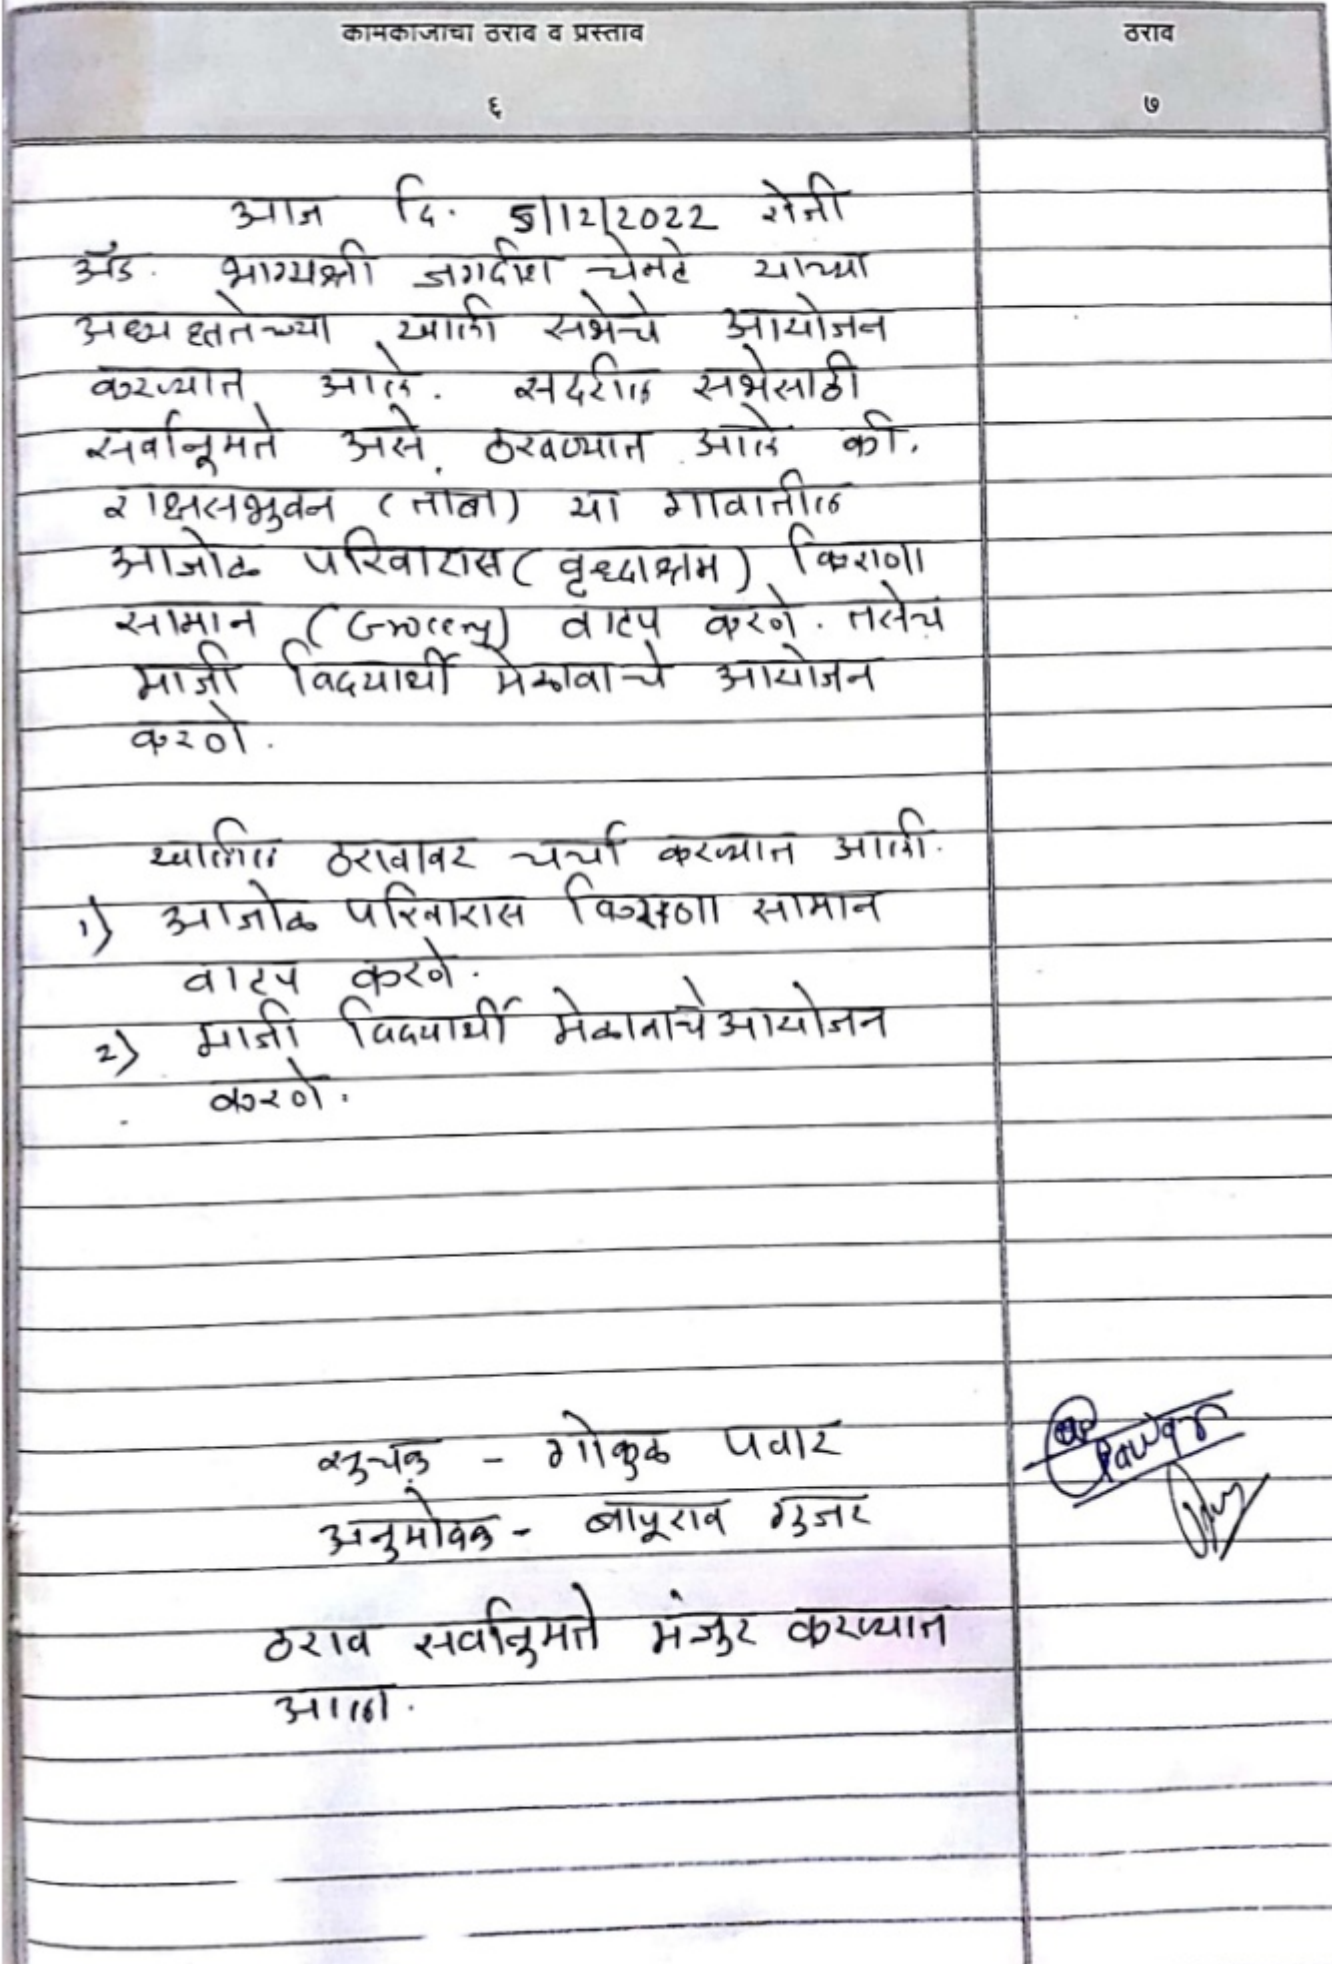 कामकाजाचा ठराव व प्रस्ताव
ठराव
६
७
आज दि. 5/12/2022 रोजी
अँड. भाग्यश्री जगदीश यांच्या
अध्यक्षतेच्या खाली सभेचे आयोजन
करण्यात आले. सदरील सभेसाठी
सर्वानूमते असे ठरवण्यात आले की.
राक्षसभुवन (तांबा) या गावातील
आजोळ परिवारास (वृध्दाश्रम) किराणा
सामान (Grocery) वाटप करणे. तसेच
माजी विदयार्थी मेळावाचे आयोजन
करणे.
खालील ठरावावर चर्चा करण्यात आली.
1) आजोळ परिवारास किराणा सामान
वाटप करणे.
2) माजी विदयार्थी मेळावाचे आयोजन
करणे.
सुचक - गोकुळ पवार
Pawar
अनुमोदक - बापूराव गुजर
ठराव सर्वानुमते मंजुर करण्यात
आला.